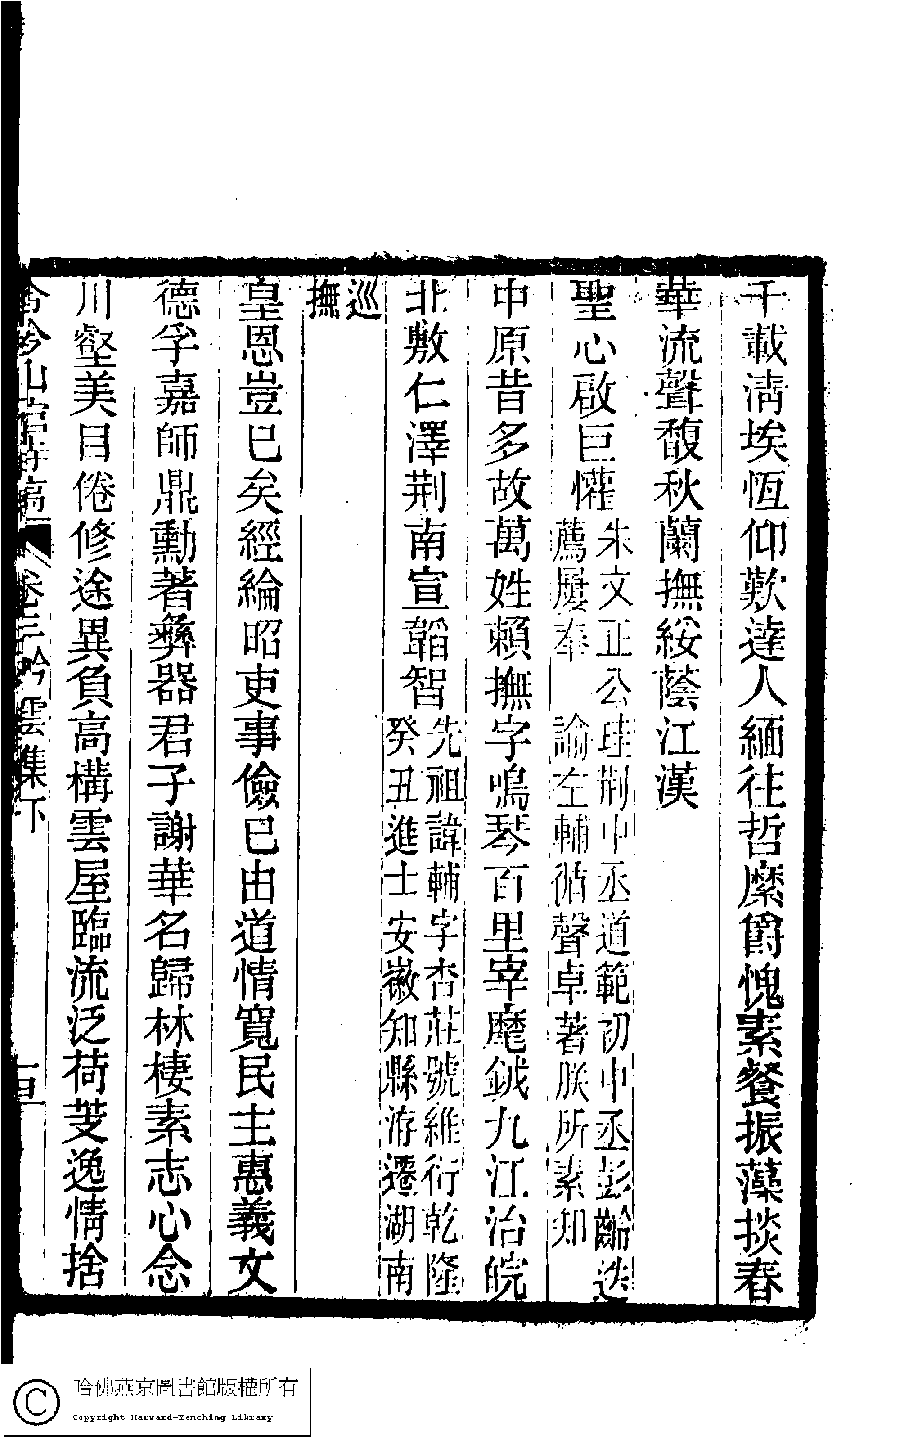 千載淸埃恆仰歎達人緬往哲縻爵愧素餐振藻掞春
華流聲馥秋蘭撫綏蔭江漢
聖心啟巨懽朱文正公珪荆中丞道範初中丞彭齡迭
薦屢奉 諭左輔循聲卓著朕所素知
中原昔多故萬姓賴撫字鳴琴百里宰麾鉞九江治皖
北敷仁澤荆南宣韜智先祖諱輔字杏莊號維衍乾隆
癸丑進士安徽知縣洊遷湖南
巡
撫
皇恩豈已矣經綸昭吏事儉已由道情寬民主惠義文
德孚嘉師鼎勳著彝器君子謝華名歸林棲素志心念
川壑美目倦修途異負高構雲屋臨流泛荷芰逸情捨
念吟山官詩稿 卷三吟雲集下